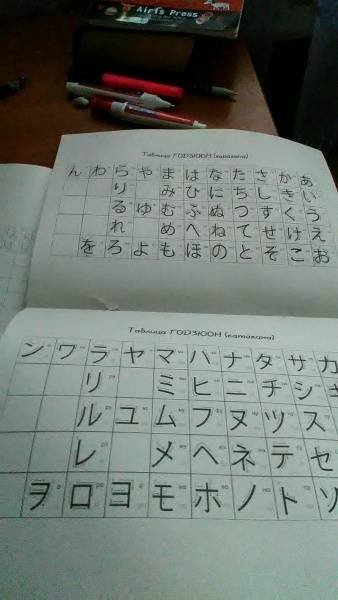 Airfs Press
Таблица ГОДЗЮОН (хирагана)
ん わ ら や ま は な た さ か あ
り み ひ に ち し き い
る ゆ む ふ ぬ つ す く う
れ め へ ね て せ け え
を ろ よ も ほ の と そ こ お
Таблица ГОДЗЮОН (катакана)
ン ワ ラ ヤ マ ハ ナ タ サ カ
リ ミ ヒ ニ チ シ キ
ル ユ ム フ ヌ ツ ス
レ メ ヘ ネ テ セ
ヲ ロ ヨ モ ホ ノ ト ソ